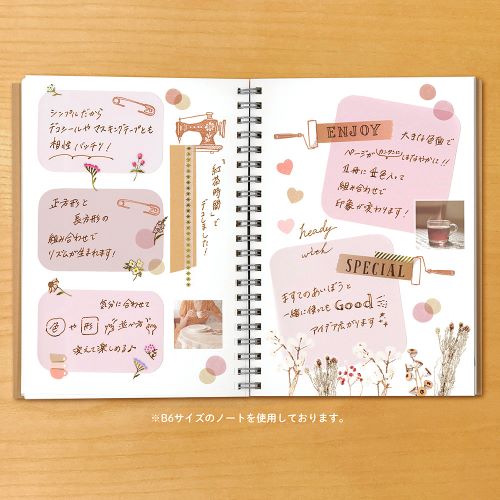 シンプルだから
デコシールや マスキングテープとも
相性 バッチリ!
正方形と
長方形の
組み合わせで
リズムが生まれます!
気分に合わせて
色 や 形 "並べ方"
変えて楽しめる♪
"紅茶時間"で
デコしました!
ENJOY
大きな色面で
ページがカンタンにはなやかに!!
1冊に 5色入って
組み合わせで
印象が変わります!
heady
with
SPECIAL
ますてのあいぼうと
一緒に使っても Good
アイデア広がります
※B6サイズのノートを使用しております。